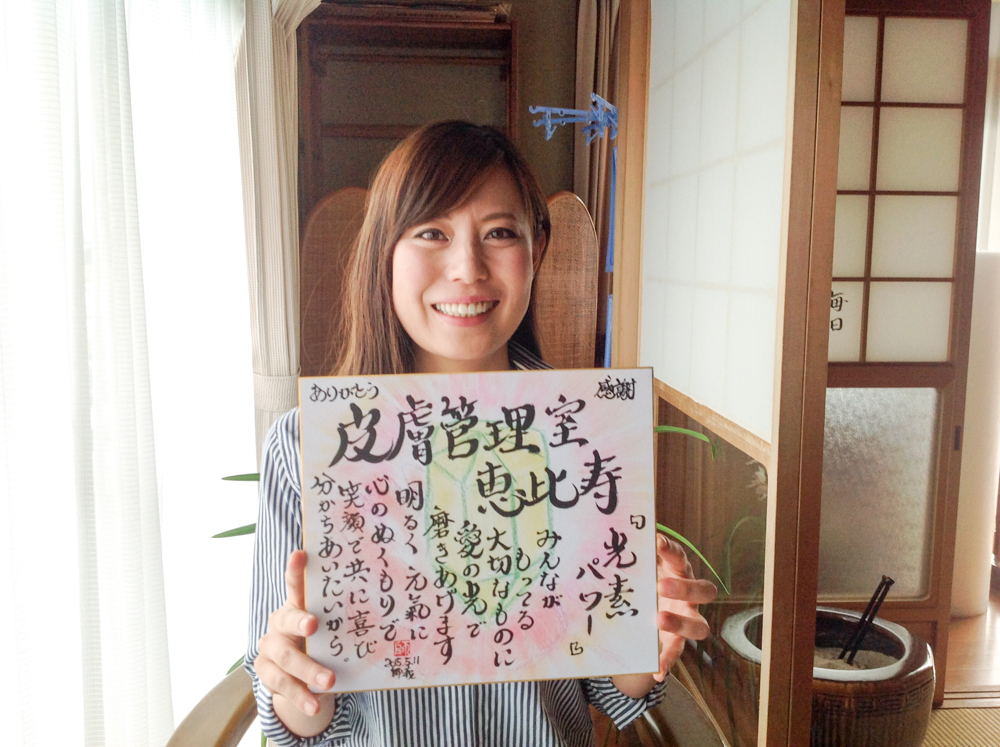 ありがとう
感謝
皮膚管理室
恵比寿
『光素
パワー』
みんなが
もってる
大切なものに
愛の光で
磨きあげます
明るく元氣に
心のぬくもりで
笑顔で共に喜び
分かちあいたいから。
2015.5.11
毎日